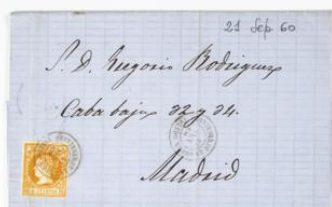 21 Sep 60
S. D. Gregorio Rodriguez
Caba baja 32 y 34.
Madrid